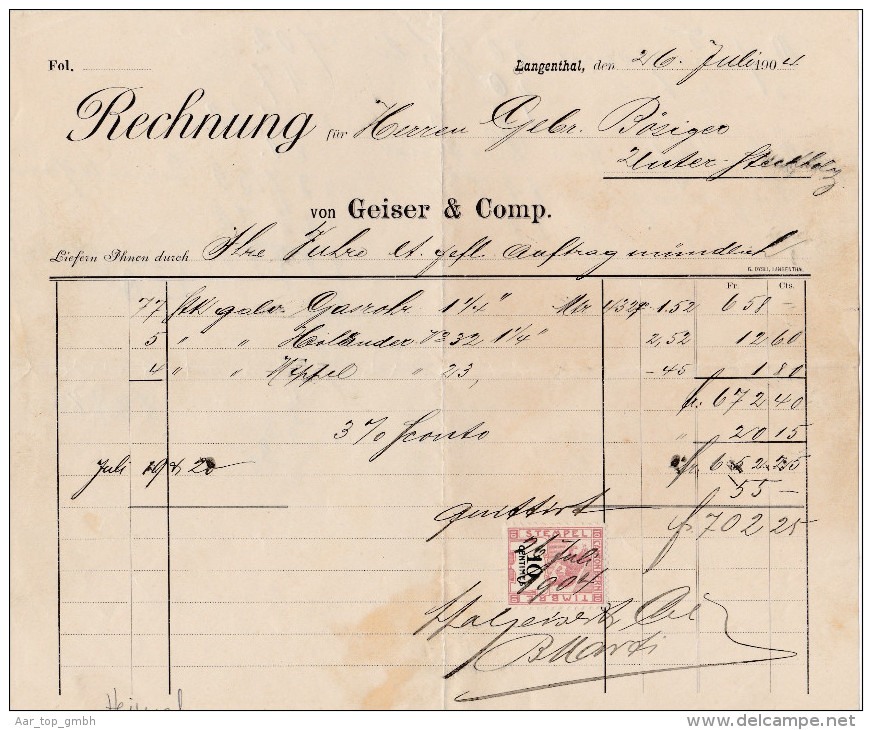 Fol.
Langenthal, den 26. Juli 1904
Rechnung für Herren Gebr. Bösiger
Unter-Steckholz
von Geiser & Comp.
Liefern Ihnen durch Ihre Fuhre lt. gefl. Auftrag mündlich
LANGENTHAL
Fr. Cts.
77 Stk galv. Gasrohr 1 1/4" Mtr 1.52 658 –
5 " " Holländer No 32 1 1/4" 2,52 12 60
4 " " Nippel " 23, -45 1 80
fr. 672 40
3 % Sconto " 20 15
Juli 19 & 20 fr. 652.25
55 –
quittirt fr. 702 25
STEMPEL
10
CENTIMES
TIMBRE
26 Juli
1904
B Marti
Aar_top_gmbh
delcampe.net